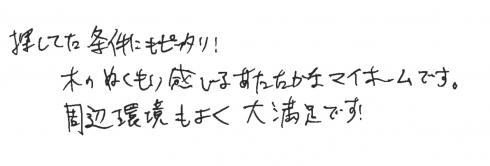 探してた条件にもピッタリ!
木のぬくもり感じるあたたかなマイホームです。
周辺環境もよく大満足です!